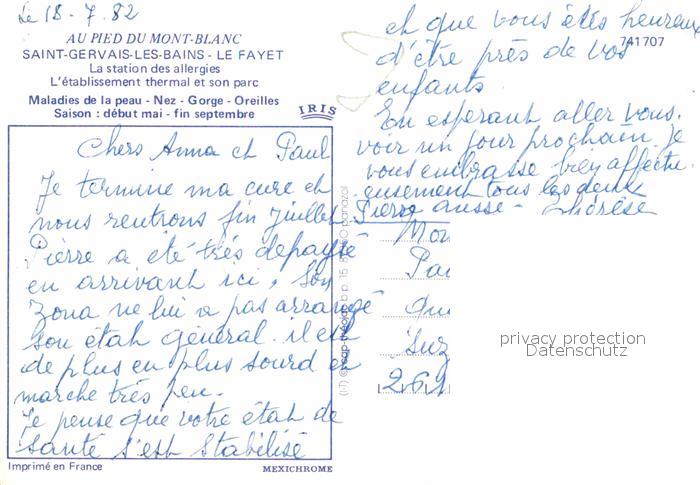 Le 18.7.82
AU PIED DU MONT-BLANC
SAINT-GERVAIS-LES-BAINS - LE FAYET
La station des allergies
L'établissement thermal et son parc
Maladies de la peau - Nez - Gorge - Oreilles
Saison : début mai - fin septembre
IRIS
Chers Anna et Paul
Je termine ma cure et
nous rentrons fin Juillet
Pierre a été très dépaysé
en arrivant ici, Son
Zona ne lui a pas arrangé
son état général. il est
de plus en plus sourd et
marche très peu.
Je pense que votre état de
santé s'est stabilisé
Imprimé en France
MEXICHROME
et que vous êtes heureux
741707
d'être près de vos
enfants
En espérant aller vous
voir un jour prochain je
vous embrasse bien affectu-
eusement tous les deux
Pierre aussi - Thérèse
Mon
Pau
Suz
261
privacy protection
Datenschutz